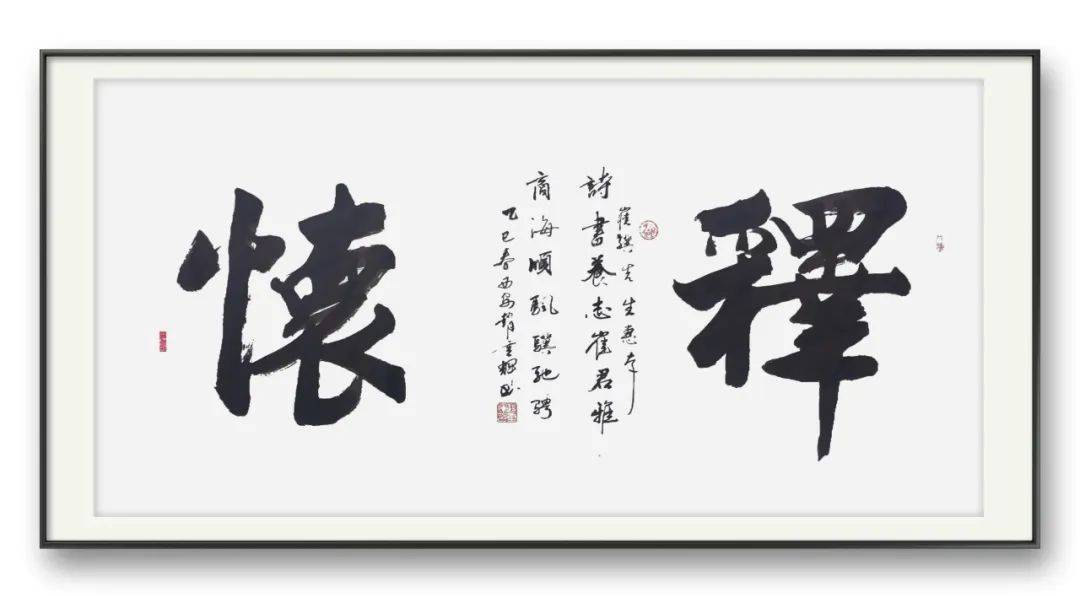 釋
崔騏先生惠存
詩書養志崔君雅
商海順颿騏馳騁
乙巳春西安趙
懷